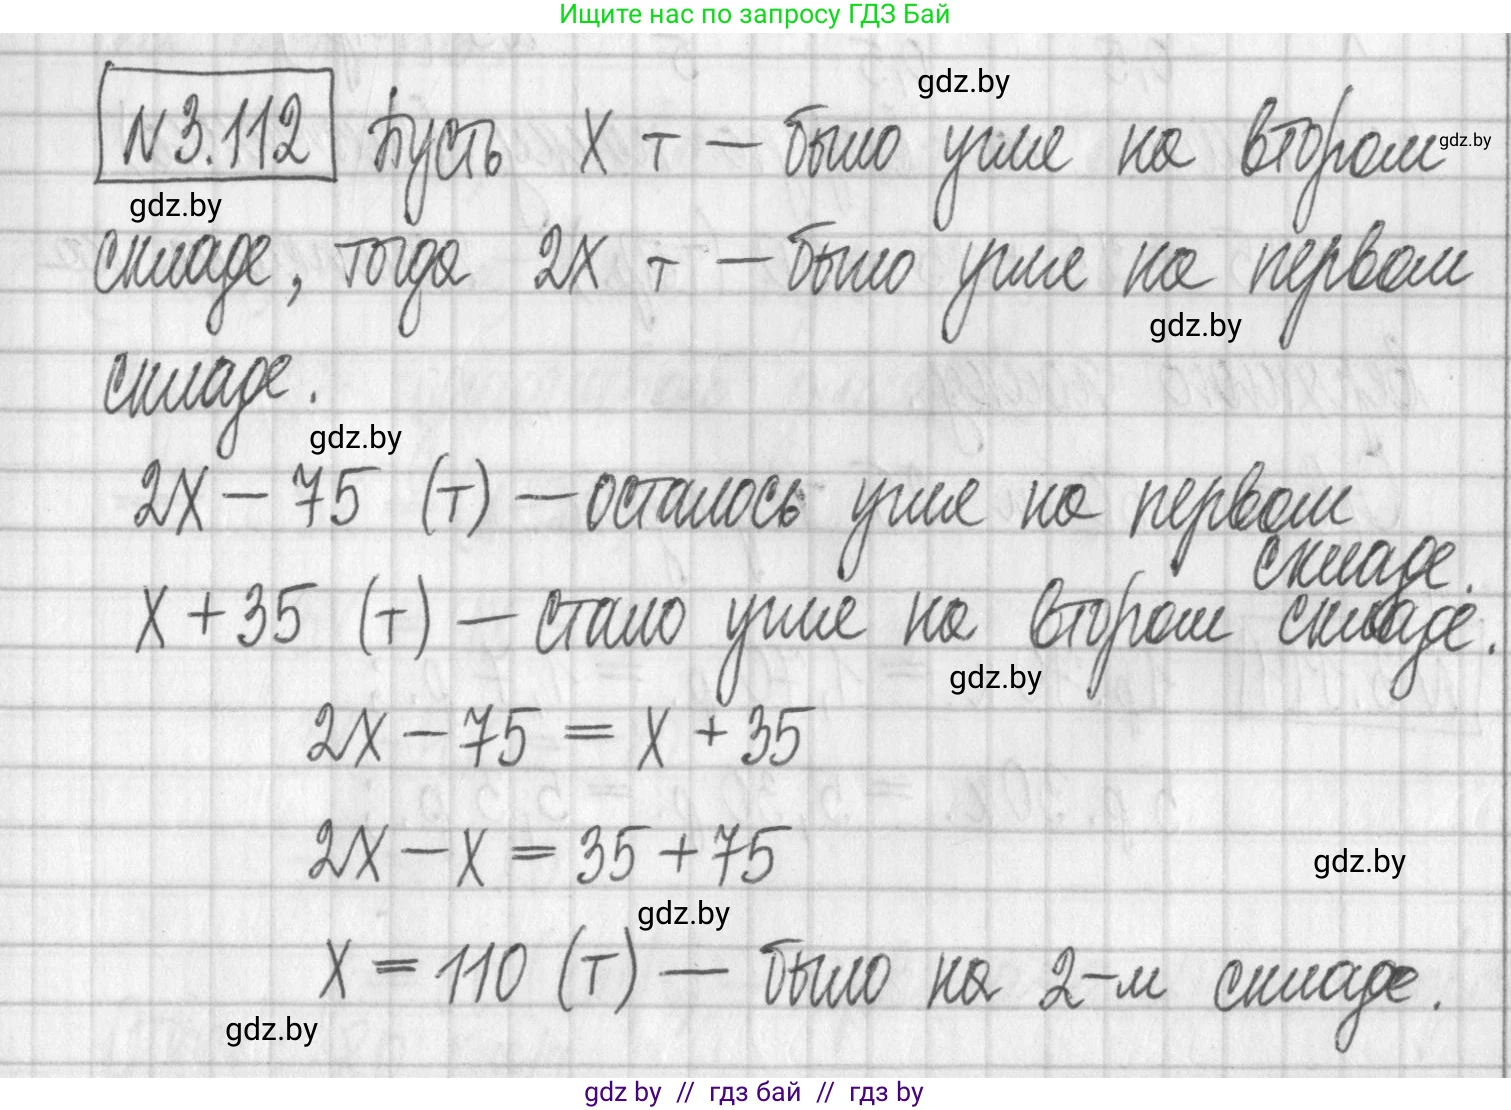 Ищите нас по запросу ГДЗ Бай
gdz.by
№3.112 Пусть x т — было угля на втором
gdz.by
gdz.by
складе, тогда 2x т — было угля на первом
gdz.by
складе.
gdz.by
2x − 75 (т) — осталось угля на первом
складе.
x + 35 (т) — стало угля на втором складе.
gdz.by
2x − 75 = x + 35
2x − x = 35 + 75
gdz.by
gdz.by
x = 110 (т) — было на 2-м складе.
gdz.by
gdz by // гдз бай // гдз by